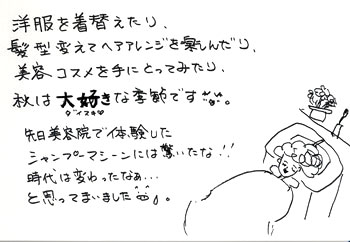 洋服を着替えたり、
髪型変えてヘアアレンジを楽しんだり、
美容コスメを手にとってみたり、
秋は大好きな季節です。
ダイスキ
先日美容院で体験した
シャンプーマシーンには驚いたな!!
時代は変わったなぁ…
と思ってまいました。